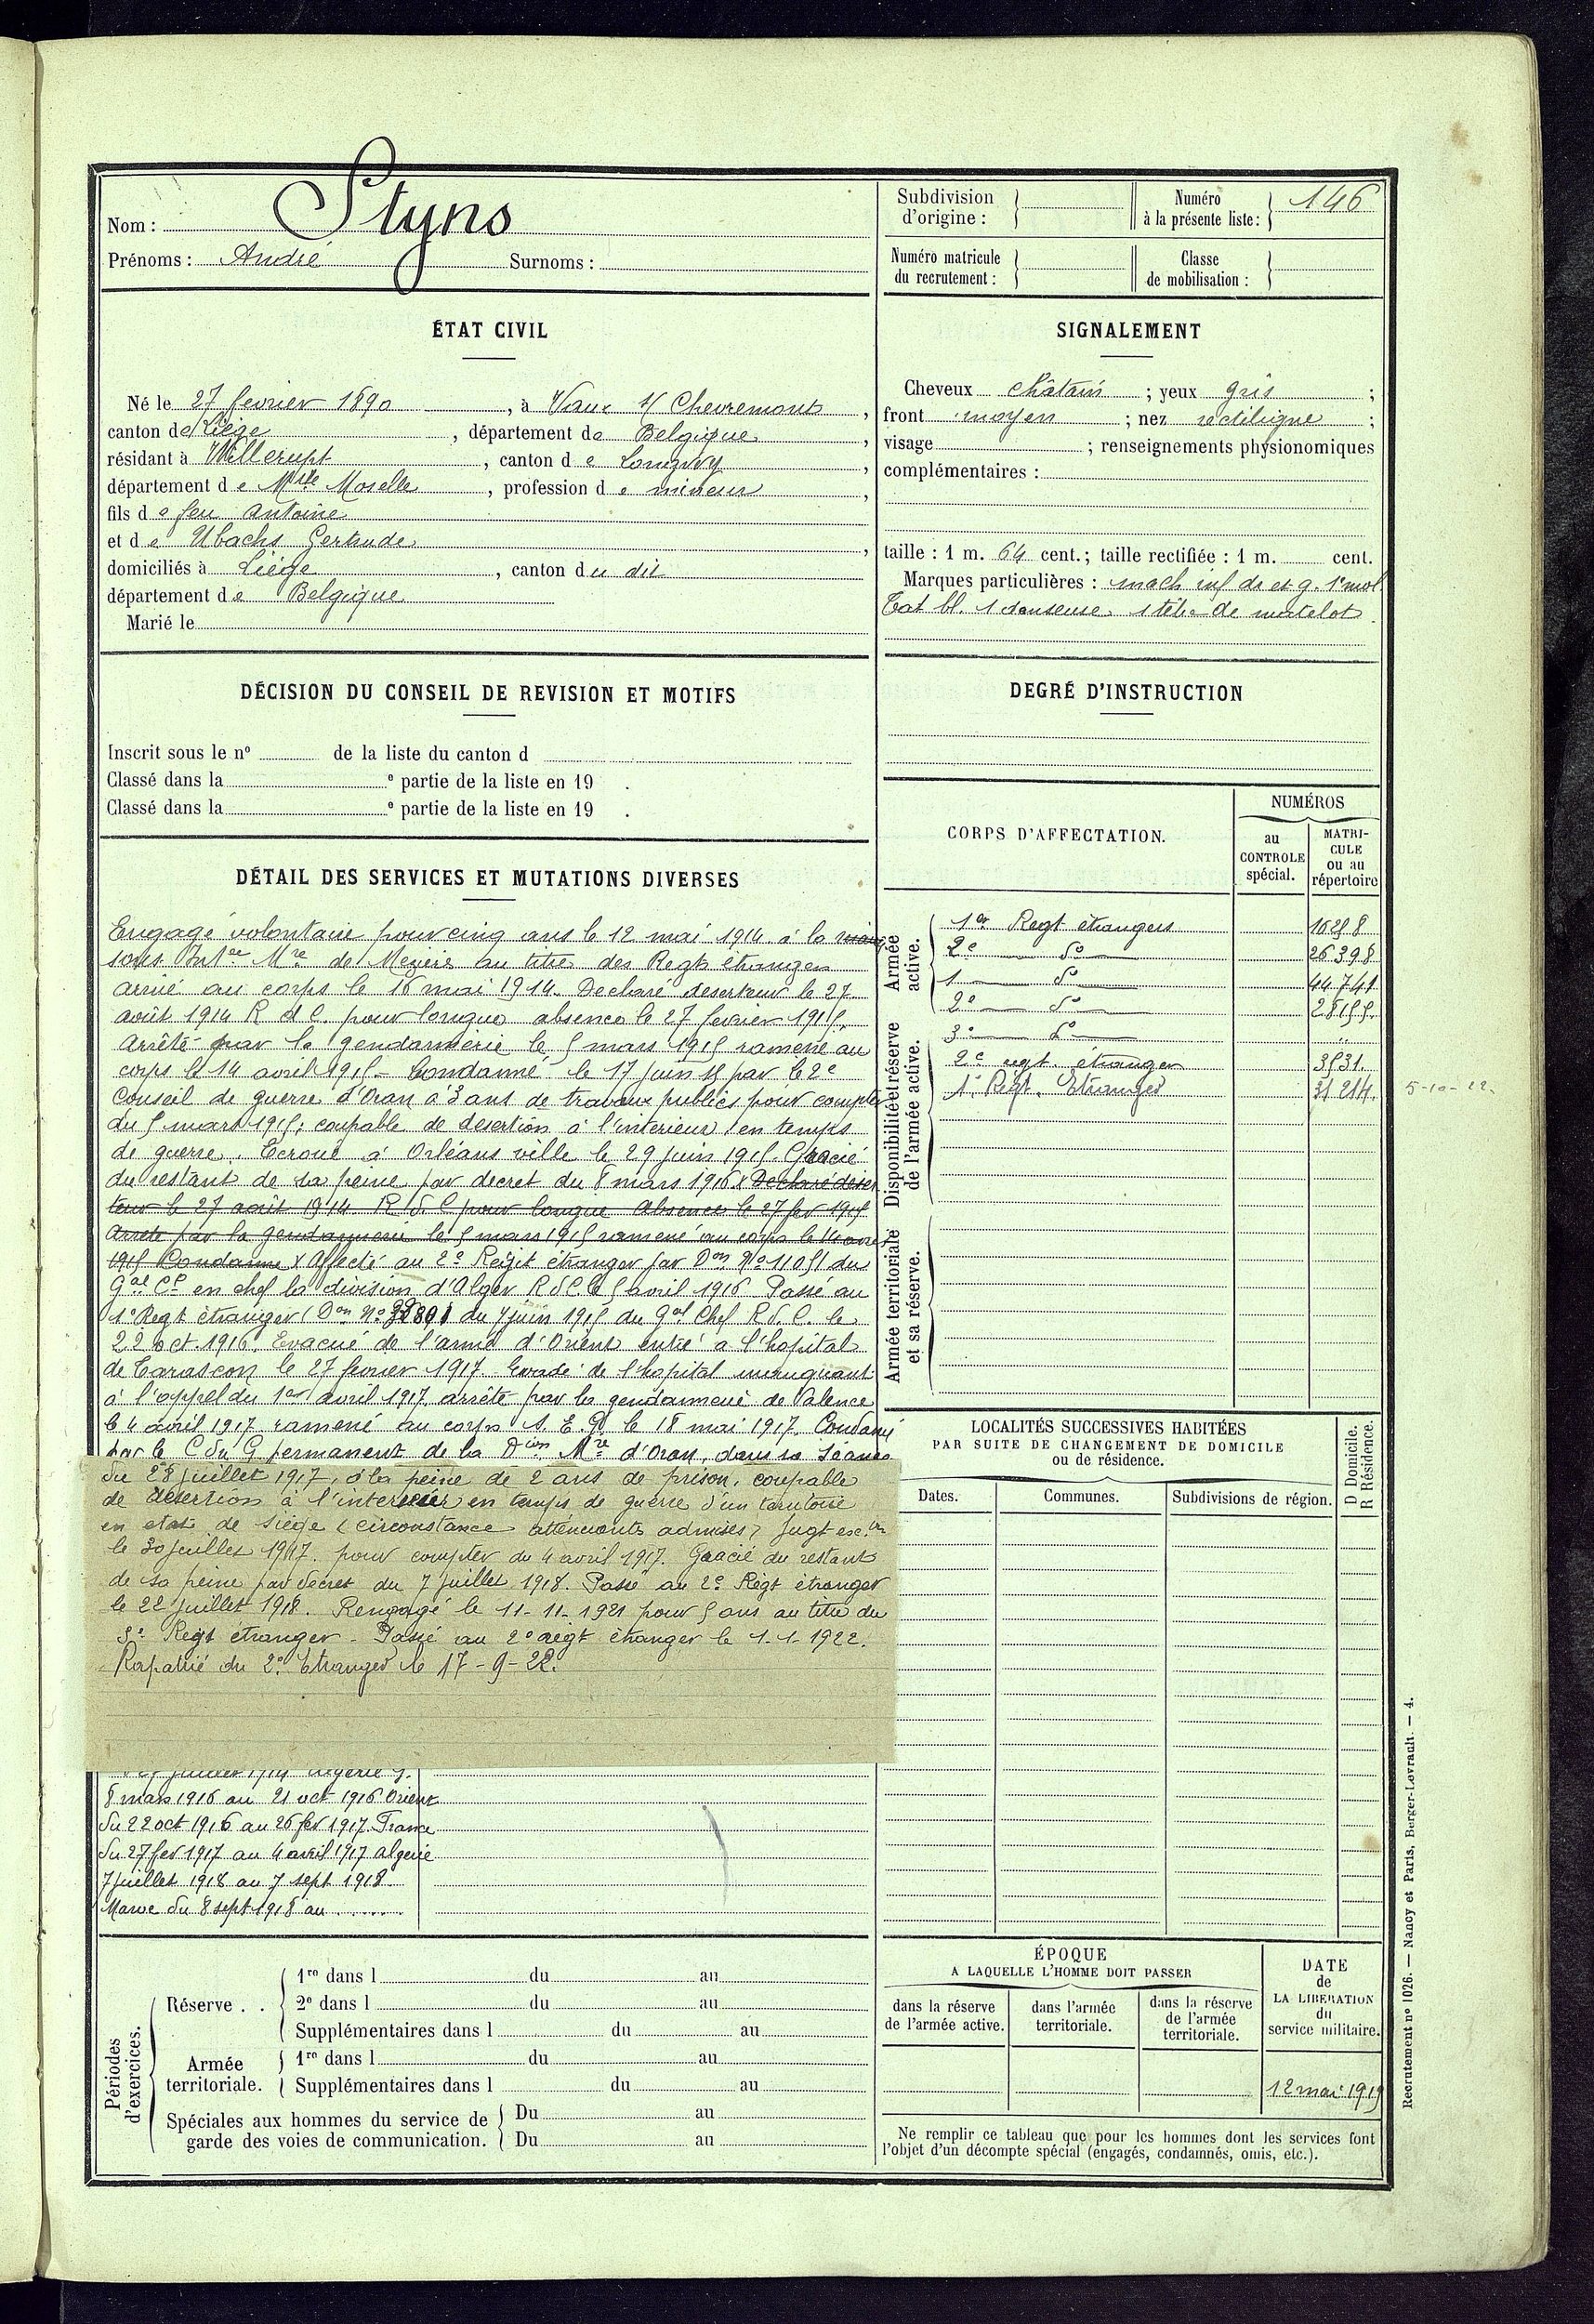 Nom : Styns
Prénoms : André Surnoms :
Subdivision d'origine :
Numéro à la présente liste : 146
Numéro matricule du recrutement :
Classe de mobilisation :
ÉTAT CIVIL
Né le 27 fevrier 1890, à Vaux s/ Chevremont,
canton de Liège, département de Belgique,
résidant à Villerupt, canton de Longwy,
département de Mthe Moselle, profession de mineur,
fils de feu Antoine
et de Ubachs Gertrude,
domiciliés à Liége, canton du dit
département de Belgique
Marié le
SIGNALEMENT
Cheveux châtain ; yeux gris ;
front moyen ; nez rectiligne ;
visage ; renseignements physionomiques
complémentaires :
taille : 1 m. 64 cent.; taille rectifiée : 1 m. cent.
Marques particulières : mach inf dr et g. 1e mol
Tat bl. 1 danseuse 1 tête de matelot
DÉCISION DU CONSEIL DE REVISION ET MOTIFS
Inscrit sous le nº de la liste du canton d
Classé dans la e partie de la liste en 19 .
Classé dans la e partie de la liste en 19 .
DEGRÉ D'INSTRUCTION
DÉTAIL DES SERVICES ET MUTATIONS DIVERSES
Engagé volontaire pour cinq ans le 12 mai 1914 à la
sous Intce Mre de Mezière au titre des Regts étrangers
arrivé au corps le 16 mai 1914. Declaré deserteur le 27
août 1914 R d C. pour longue absence le 27 fevrier 1915.
Arrêté par la gendarmerie le 5 mars 1915 ramené au
corps le 14 avril 1915 - Condamné le 17 juin 15 par le 2e
Conseil de guerre d'Oran à 3 ans de travaux publics pour compter
du 5 mars 1915; coupable de desertion à l'interieur en temps
de guerre. Ecroué à Orléans ville le 29 juin 1915. Gracié
du restant de sa peine par decret du 8 mars 1916 x Declaré deser
teur le 27 août 1914 R. d. C pour longue Absence le 27 fev 1915
Arrêté par la gendarmerie le 5 mars 1915 ramené au corps le 14 avril
1915 Condamné x Affecté au 2e Regt étranger par Don No 11051 du
Gal Ct en chef la division d'Alger R d C le 5 avril 1916 Passé au
1e Regt étranger (Don No du 7 juin 1915 du Gal Chef R. d. C. le
22 oct. 1916. Evacué de l'armée d'Orient entré a l'hopital
de Tarascon le 27 fevrier 1917. Evadé de l'hopital manquant
à l'appel du 1er avril 1917. arrêté par la gendarmerie de Valence
le 4 avril 1917 ramené au corps le 18 mai 1917. Condamné
par le C du G permanent de la Dion Mre d'Oran, dans sa séance
du 28 juillet 1917, à la peine de 2 ans de prison, coupable
de desertion à l'interieur en temps de guerre d'un territoire
en etat de siège (circonstance attenuants admises) Jugt exec.
le 30 juillet 1917. pour compter du 4 avril 1917. Gracié du restant
de sa peine par decret du 7 juillet 1918. Passé au 2e Régt étranger
le 22 juillet 1918. Rengagé le 11-11-1921 pour 5 ans au titre du
3e Regt étranger - Passé au 2e régt étranger le 1-1-1922.
Rapatrié du 2e Etranger le 17-9-22.
8 mars 1916 au 21 oct 1916 Orient
du 22 oct 1916 au 26 fev 1917. France
du 27 fev 1917 au 4 avril 1917 Algerie
7 juillet 1918 au 7 sept 1918
Maroc du 8 sept 1918 au ......
CORPS D'AFFECTATION.
NUMÉROS
au CONTROLE spécial.
MATRICULE ou au répertoire
Armée active.
1er Regt étrangers
2e do 26398
1 do 44741
2e do
3e do "
2e regt étranger 3531.
1e Regt. Etranger 31214. 5-10-22.
Disponibilité et réserve de l'armée active.
Armée territoriale et sa réserve.
LOCALITÉS SUCCESSIVES HABITÉES
PAR SUITE DE CHANGEMENT DE DOMICILE
ou de résidence.
Dates.
Communes.
Subdivisions de région.
D Domicile.
R Résidence.
Périodes d'exercices.
Réserve . . 1re dans l du au
2e dans l du au
Supplémentaires dans l du au
Armée territoriale. 1re dans l du au
Supplémentaires dans l du au
Spéciales aux hommes du service de garde des voies de communication. Du au
Du au
ÉPOQUE
A LAQUELLE L'HOMME DOIT PASSER
dans la réserve de l'armée active.
dans l'armée territoriale.
dans la réserve de l'armée territoriale.
DATE de LA LIBÉRATION du service militaire.
12 mai 1919
Ne remplir ce tableau que pour les hommes dont les services font
l'objet d'un décompte spécial (engagés, condamnés, omis, etc.).
Recrutement nº 1026. — Nancy et Paris, Berger-Levrault. — 4.